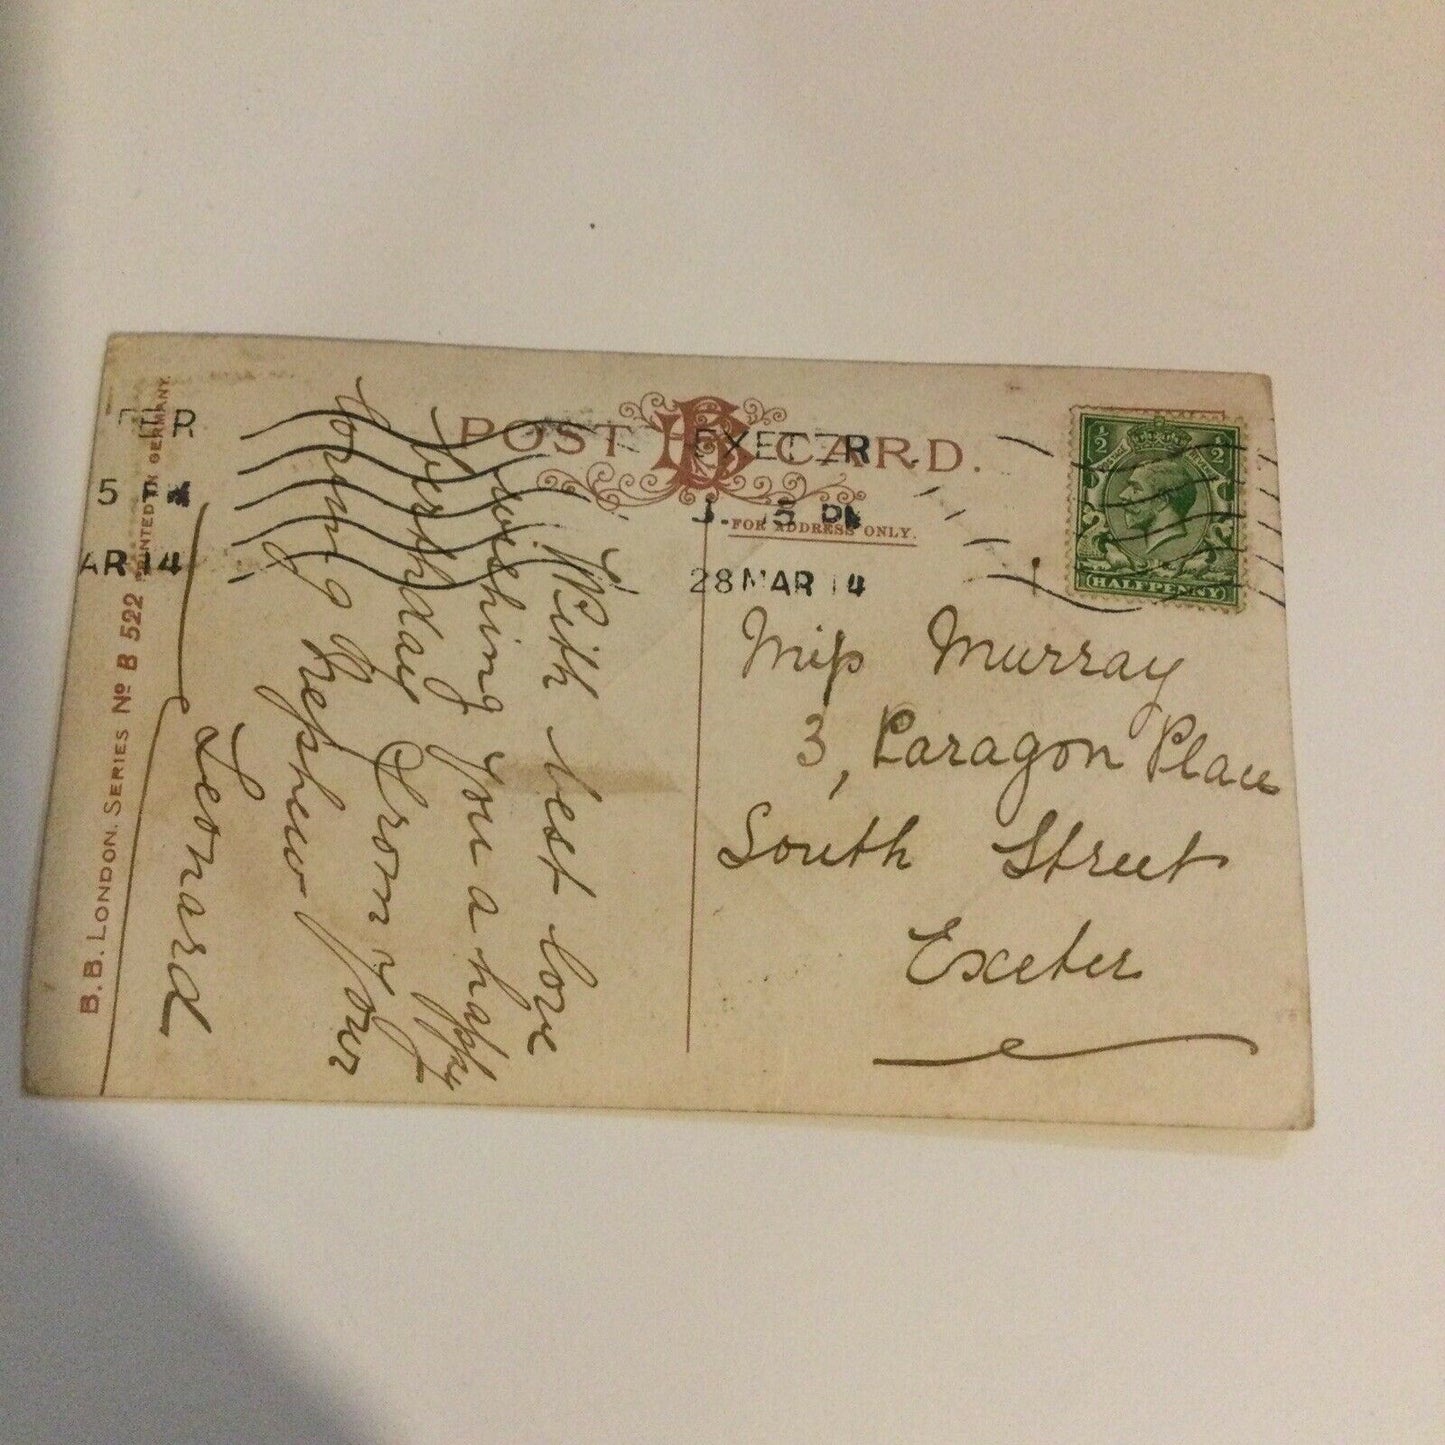 POST CARD.
FOR ADDRESS ONLY.
EXETER
28 MAR 14
½ ½
HALFPENNY
Miss Murray
3, Paragon Place
South Street
Exeter
With best love
wishing you a happy
birthday From y
loving Nephew Your
Leonard
B. B. LONDON. SERIES Nº B 522
PRINTED IN GERMANY.
AR 14